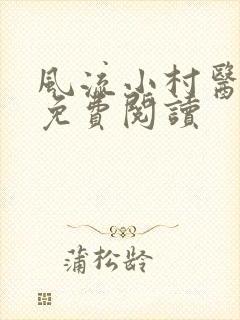 風流小村醫
免費閱讀
蒲松龄